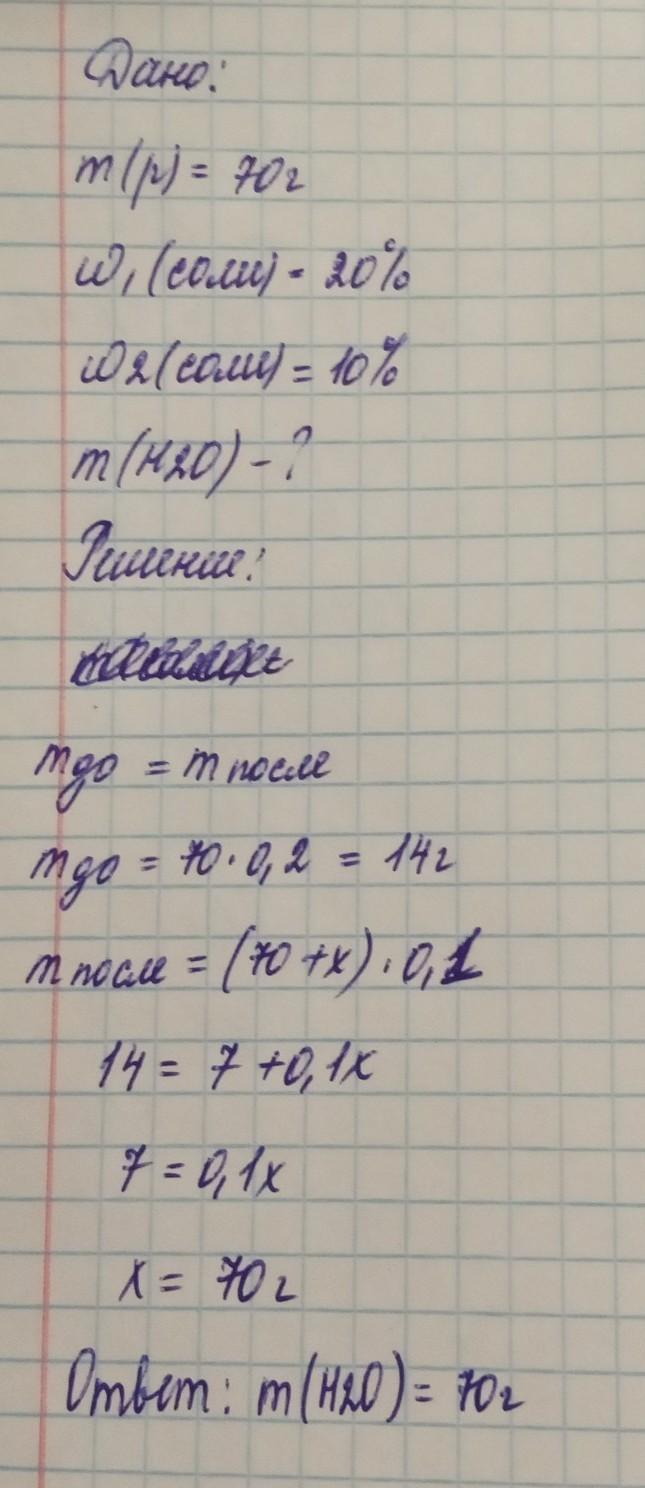 Дано:
m(р) = 70г
ω1(соли) = 20%
ω2(соли) = 10%
m(H2O) - ?
Решение:
mдо = mпосле
mдо = 70 · 0,2 = 14г
mпосле = (70 + x) · 0,1
14 = 7 + 0,1x
7 = 0,1x
x = 70г
Ответ: m(H2O) = 70г